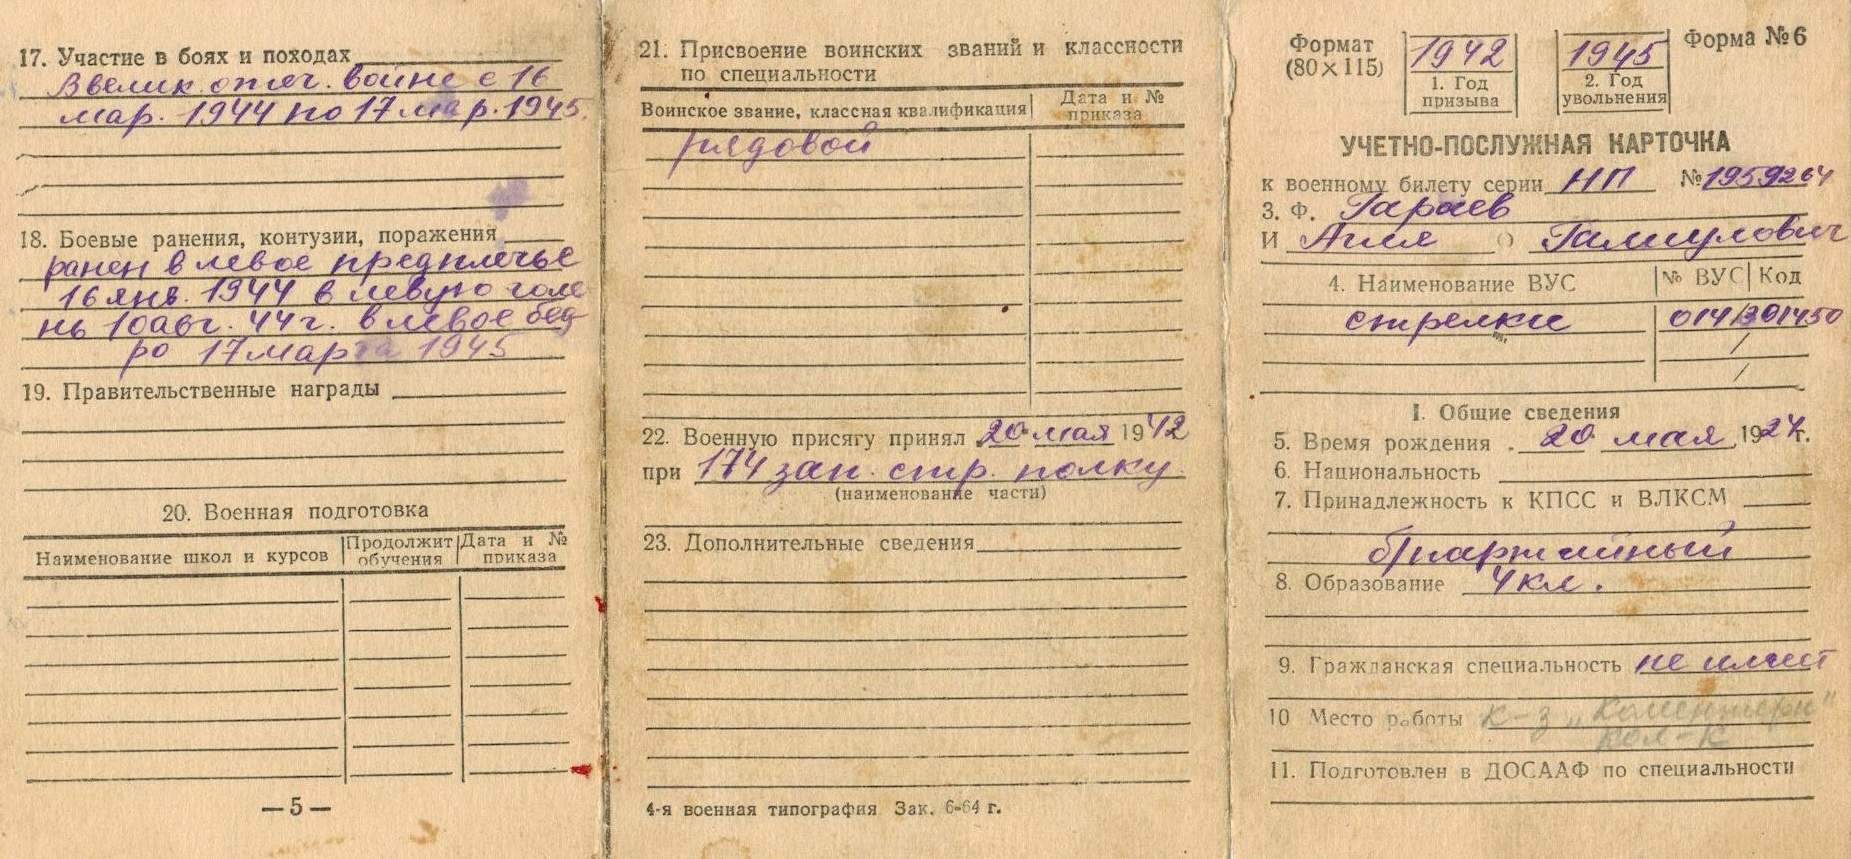 17. Участие в боях и походах
В велик. отеч. войне с 16
мар. 1944 по 17 мар. 1945.
18. Боевые ранения, контузии, поражения
ранен в левое предплечье
16 янв. 1944 в левую голе
нь 10 авг. 44 г. в левое бед
ро 17 марта 1945
19. Правительственные награды
20. Военная подготовка
Наименование школ и курсов
Продолжит обучения
Дата и № приказа
— 5 —
21. Присвоение воинских званий и классности
по специальности
Воинское звание, классная квалификация
Дата и № приказа
рядовой
22. Военную присягу принял 20 мая 1942
при 174 зап. стр. полку.
(наименование части)
23. Дополнительные сведения
4-я военная типография Зак. 6-64 г.
Формат
(80×115)
1942
1. Год
призыва
1945
2. Год
увольнения
Форма № 6
УЧЕТНО-ПОСЛУЖНАЯ КАРТОЧКА
к военному билету серии НП № 1959264
3. Ф. Гараев
И О
4. Наименование ВУС
№ ВУС
Код
стрелки
I. Общие сведения
5. Время рождения . 20 мая 1924 г.
6. Национальность
7. Принадлежность к КПСС и ВЛКСМ
б/партийный
8. Образование 4 кл.
9. Гражданская специальность не имеет
10 Место работы к-з „Коминтерн"
11. Подготовлен в ДОСААФ по специальности